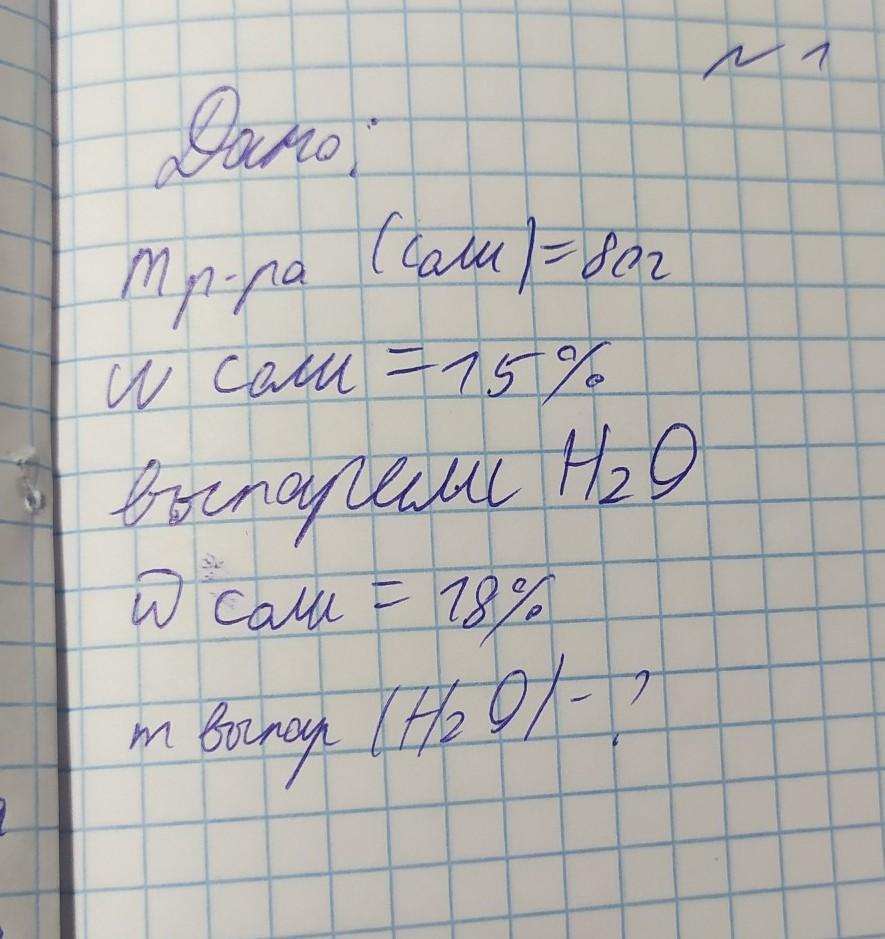 ~ 1
Дано:
m р-ра (соли) = 80г
w соли = 15%
выпарили H₂O
w соли = 18%
m выпар (H₂O) - ?